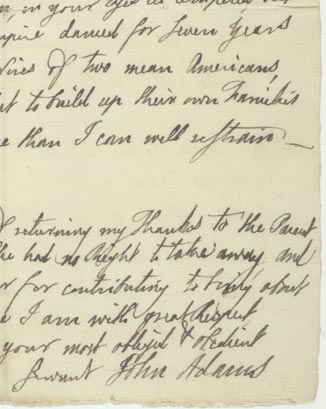 in your Eyes as compared
mpire damned for seven years
of two mean Americans,
to build up their own Families
e than I can well restrain —
returning my Thanks to the Parent
he had no Right to take away, and
r for contributing to bring about
I am with great Respect
your most obliged & obedient
Servant John Adams